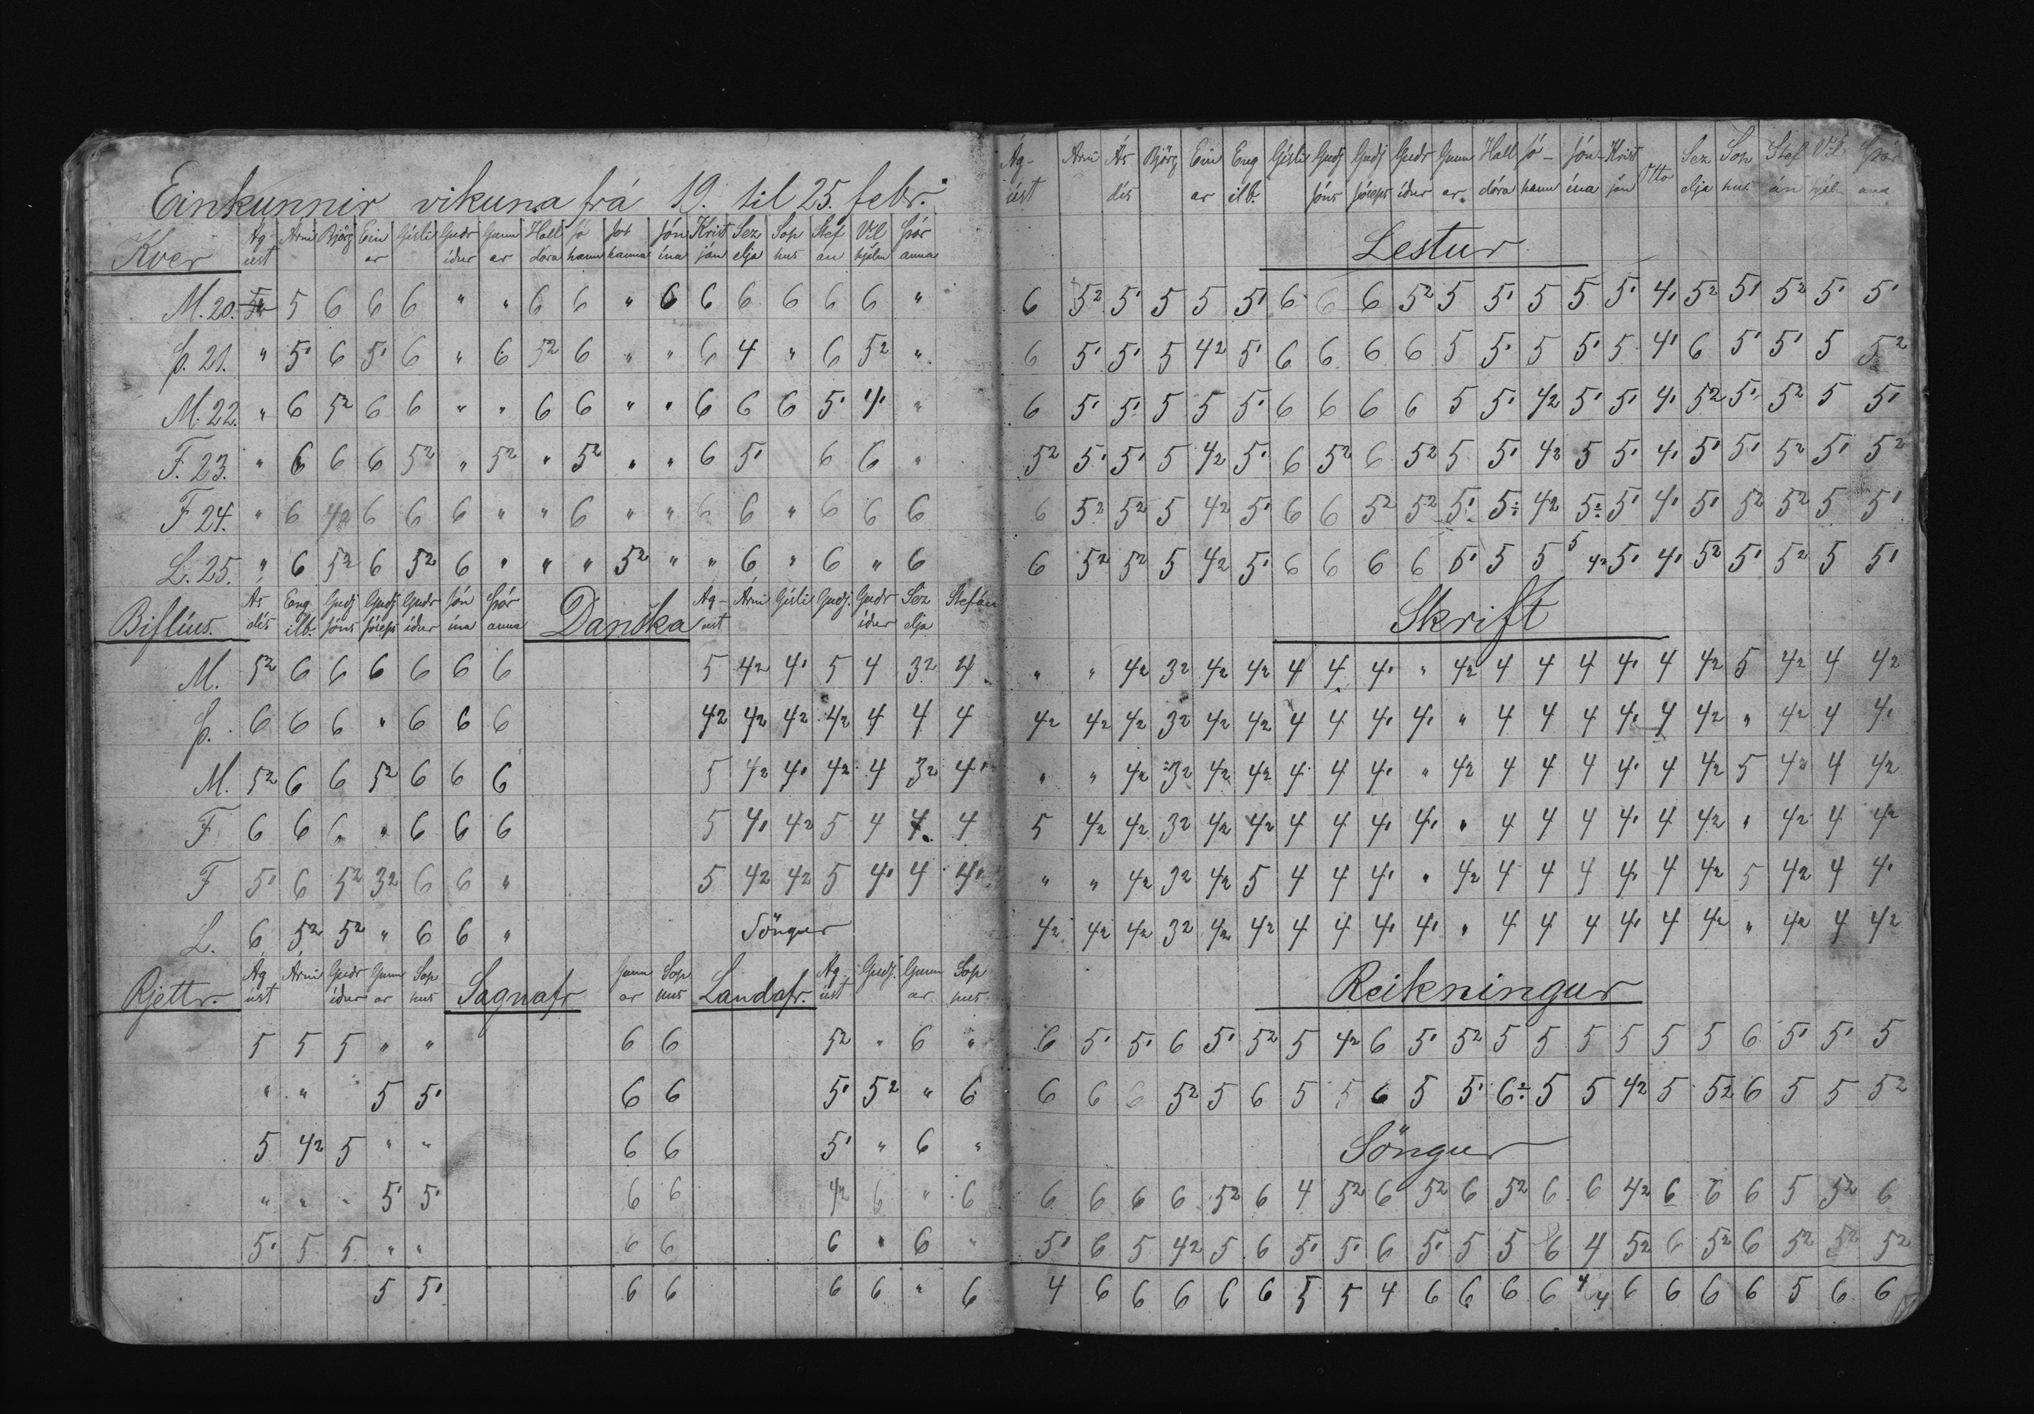 Einkunnir vikuna frá 19. til 25. febr.
Kver Ág-úst Árni Björg Ein ar Gísli Guðr íður Gunn ar Hall dóra Jó hann Jóh hanna Jón ína Krist ján Sez elja Sop hus Stef án Vil hjálm Þór anna
M. 20. 5 6 6 6 " " 6 6 " 6 6 6 6 6 6 "
Þ. 21. " 5' 6 5' 6 " 6 5² 6 " " 6 4 " 6 5² "
M. 22. " 6 5² 6 6 " " 6 6 " " 6 6 6 5' 4' "
F. 23. " 6 6 6 5² " 5² " 5² " " 6 5' 6 6 "
F 24. " 6 4² 6 6 6 " " 6 " " 6 6 " 6 6 6
L. 25. " 6 5² 6 5² 6 " " " 5² " " 6 " 6 " 6
Biflíus. Ás dís Eng ilb. Guðj Jóns Guðj Jóseps Guðr íður Jón ína Þór anna Danska Ág-úst Árni Gísli Guðj. Guðr íður Sez elja Stefán
M. 5² 6 6 6 6 6 6 5 4² 4' 5 4 3² 4
Þ. 6 6 6 " 6 6 6 4² 4² 4² 4² 4 4 4
M. 5² 6 6 5² 6 6 6 5 4² 4' 4² 4 3² 4'
F 6 6 6 " 6 6 6 5 4' 4² 5 4 4 4
F 5' 6 5² 3² 6 6 " 5 4² 4² 5 4' 4 4'
L. 6 5² 5² " 6 6 " Söngur
Rjettr. Ág úst Árni Guðr íður Gunn ar Sop hus Sagnafr Gunn ar Sop hus Landafr. Ág úst Guðj. Gunn ar Sop hus
5 5 5 " " 6 6 5² " 6 "
" " 5 5' 6 6 5' 5² " 6
5 4² 5 " " 6 6 5' " 6 "
" " " 5' 5' 6 6 4² 6 " 6
5' 5 5 " " 6 6 6 " 6 "
5 5' 6 6 6 6 " 6
Ág-úst Árni Ás dís Björg Ein ar Eng ilb. Gísli Guðj Jóns Guðj Jóseps Guðr íður Gunn ar Hall dóra Jó-hann Jón-ína Krist ján Otto Sez elja Sop hus Stef án Vil hjál Þór ana
Lestur
6 5² 5' 5 5 5' 6 6 6 5² 5 5' 5 5 5' 4' 5² 5' 5² 5' 5'
6 5' 5' 5 4² 5' 6 6 6 6 5 5' 5 5' 5 4' 6 5' 5' 5 5²
6 5' 5' 5 5 5' 6 6 6 6 5 5' 4² 5' 5' 4' 5² 5' 5² 5 5'
5² 5' 5' 5 4² 5' 6 5² 6 5² 5 5' 4² 5 5' 4' 5' 5' 5² 5' 5²
6 5² 5² 5 4² 5' 6 6 5² 5² 5' 5: 4² 5: 5' 4' 5' 5² 5² 5 5'
6 5² 5² 5 4² 5' 6 6 6 6 5' 5 5 5 4² 5' 4' 5² 5' 5² 5 5'
Skrift
" " 4² 3² 4² 4² 4 4 4' " 4² 4 4 4 4' 4 4² 5 4² 4 4²
4² 4² 4² 3² 4² 4² 4 4 4' 4' " 4 4 4 4' 4 4² " 4² 4 4'
" " 4² 3² 4² 4² 4 4 4' " 4² 4 4 4 4' 4 4² 5 4² 4 4²
5 4² 4² 3² 4² 4² 4 4 4' 4' " 4 4 4 4' 4 4² " 4² 4 4²
" " 4² 3² 4² 5 4 4 4' " 4² 4 4 4 4' 4 4² 5 4² 4 4'
4² 4² 4² 3² 4² 4² 4 4 4' 4' " 4 4 4 4' 4 4² " 4² 4 4²
Reikningur
6 5' 5' 6 5' 5² 5 4² 6 5' 5² 5 5 5 5 5 5 6 5' 5' 5
6 6 6 5² 5 6 5 5 6 5 5' 6: 5 5 4² 5 5² 6 5 5 5²
Söngur
6 6 6 6 5² 6 4 5² 6 5² 6 5² 6 6 4² 6 6 6 5 5² 6
5' 6 5 4² 5 6 5' 5' 6 5' 5 5 6 4 5² 6 5² 6 5² 5² 5²
4 6 6 6 6 6 5 5 4 6 6 6 6 4 4 6 6 6 6 5 6 6